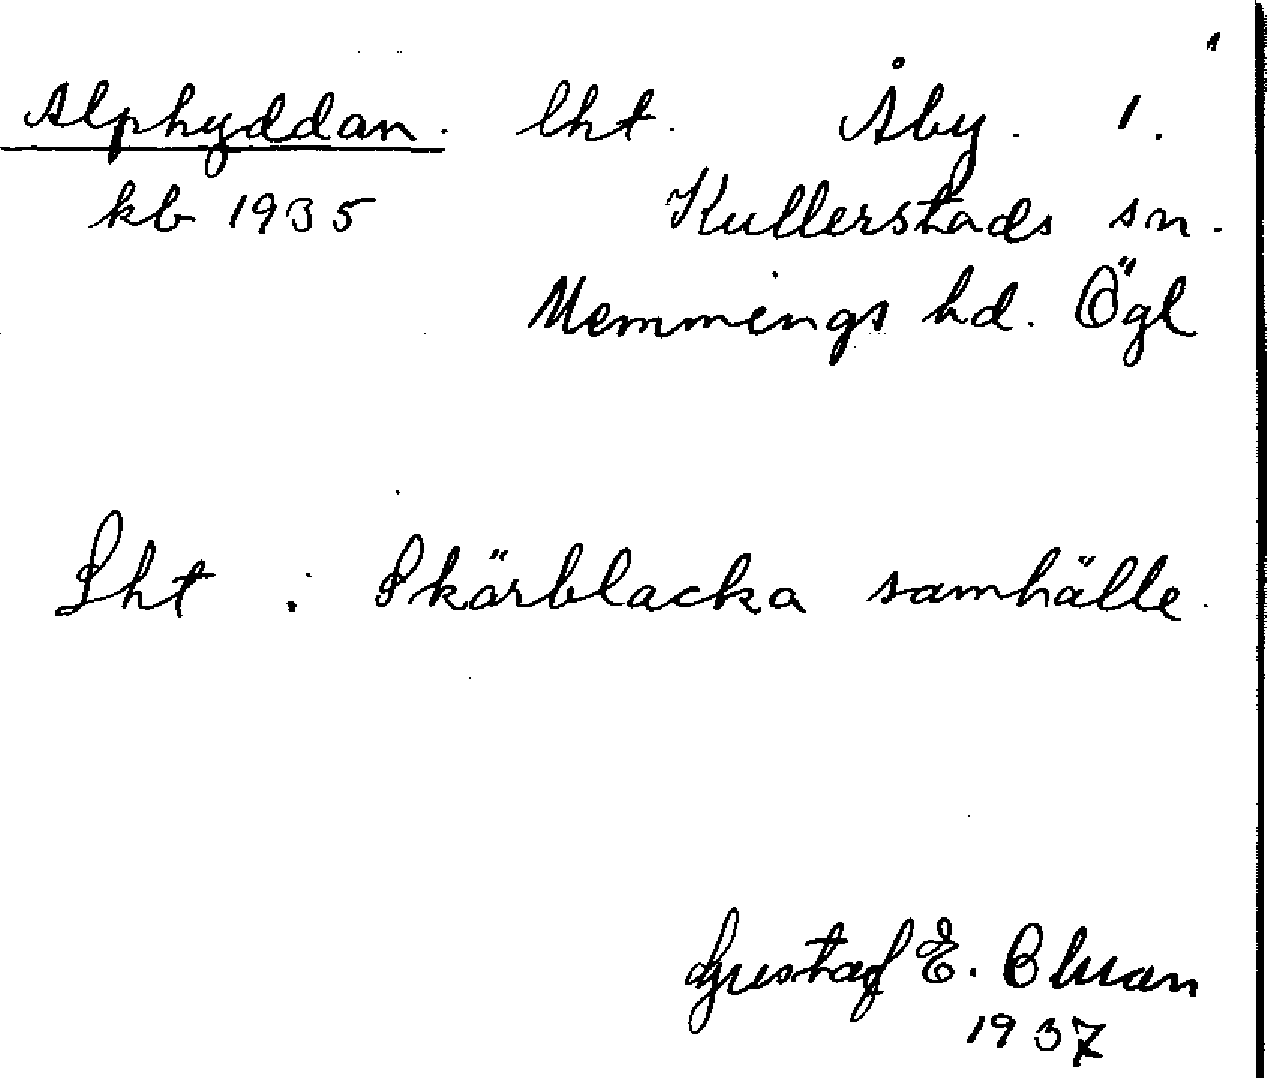 Alphyddan. lht. Åby. 1.
kb 1935 Kullerstads sn.
Memmings hd. Ögl
Lht. i Skärblacka samhälle.
Gustaf E.
1937